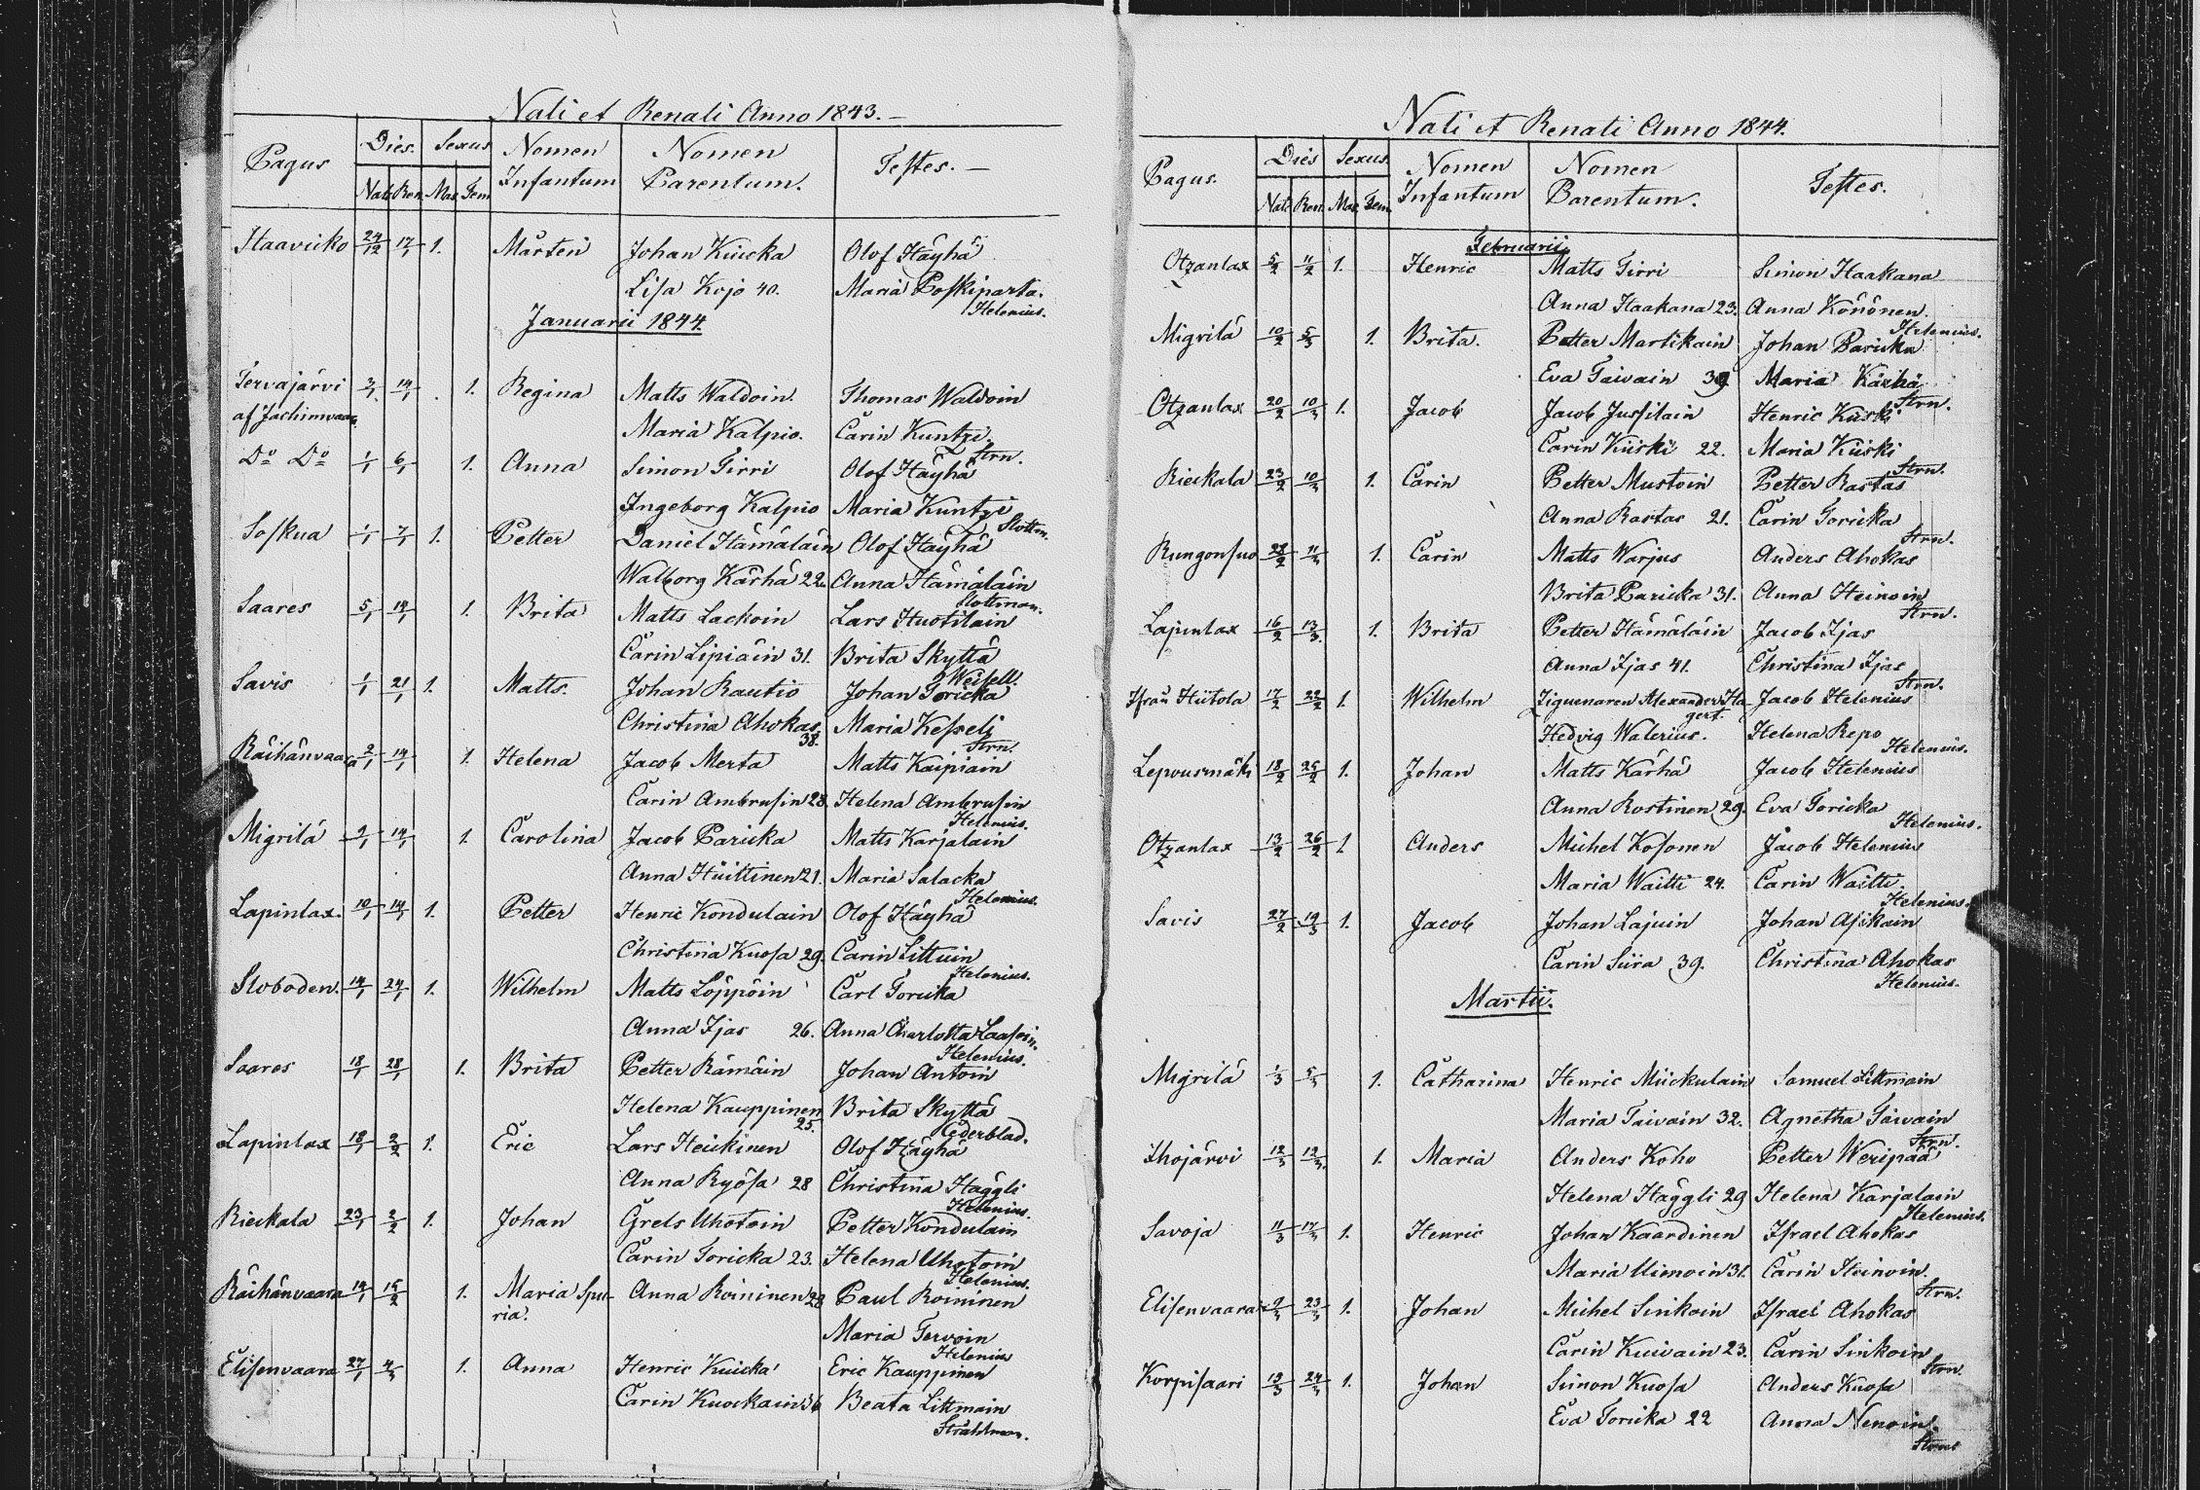 Nati et Renati Anno 1843.
Pagus Dies. Sexus Nomen Infantum Nomen Parentum. Testes.
Nati Ren. Mas. Fem.
Haavicko 24/12 17/1 1. Mårten Johan Kiucka Olof Häyhä
Lisa Kojo 40. Maria Poskiparta.
Helenius.
Januarii 1844.
Tervajärvi 3/1 14/1 1. Regina Matts Waldoin. Thomas Waldoin
af Jächimvaara Maria Kalpio. Carin Kuntzi.
Strn.
Do Do 1/1 6/1 1. Anna Simon Tirri Olof Häyhä
Ingeborg Kalpio Maria Kuntzi
Slottm.
Soskua 1/1 7/1 1. Petter Daniel Hämäläin Olof Häyhä
Walborg Kärhä 22. Anna Hämäläin
Slottman.
Saares 5/1 14/1 1. Brita Matts Lackoin Lars Huotilain
Carin Lipiäin 31. Brita Skyttä
Weisell.
Savis 1/1 21/1 1. Matts. Johan Rautio Johan Toricka
Christina Ahokas 38. Maria Kesseli
Strn.
Räihänvaara 2/1 14/1 1. Helena Jacob Merta Matts Kaipiain
Carin Ambrusin 28. Helena Ambrusin
Helenius.
Migrilä 9/1 14/1 1. Carolina Jacob Paricka Matts Karjalain
Anna Hüittinen 21. Maria Salacka
Helenius.
Lapinlax. 10/1 14/1 1. Petter Henric Kondulain Olof Häyhä
Christina Kuosa 29. Carin Littuin
Helenius.
Sloboden. 14/1 24/1 1. Wilhelm Matts Löppöin Carl Toricka
Anna Ijas 26. Anna Charlotta Laasoin.
Helenius.
Saares 18/1 28/1 1. Brita Petter Rämäin Johan Antoin
Helena Kauppinen 25. Brita Skyttä
Cederblad.
Lapinlax 18/1 2/2 1. Eric Lars Heickinen Olof Häyhä
Anna Ryösa 28 Christina Häggli
Helenius.
Rieckala 23/1 2/2 1. Johan Grels Uhotoin Petter Kondulain
Carin Toricka 23. Helena Uhotoin
Helenius.
Räihänvaara 14/1 15/2 1. Maria Spu- Anna Roininen 28 Paul Roininen
ria. Maria Tervoin
Helenius
Elisenvaara 27/1 4/3 1. Anna Henric Kuicka Eric Kauppinen
Carin Kuockain 36 Beata Littmain
Stråhlman.
Nati et Renati Anno 1844.
Pagus. Dies Sexus Nomen Infantum Nomen Parentum. Testes.
Nati Ren. Mas. Fem.
Februarii
Otzanlax 5/2 11/2 1. Henric Matts Tirri Simon Haakana
Anna Haakana 23. Anna Könönen.
Helenius.
Migrilä 10/2 5/3 1. Brita. Petter Martikain Johan Paricka
Eva Taivain 39 Maria Kärhä
Strn.
Otzanlax 20/2 10/3 1. Jacob Jacob Jussilain Henric Kiiski
Carin Kiiski 22. Maria Kiiski
Strn.
Rieckala 23/2 10/3 1. Carin Petter Mustoin Petter Rastas
Anna Rastas 21. Carin Toricka
Strn.
Rungonsuo 28/2 11/3 1. Carin Matts Warjus Anders Ahokas
Brita Paricka 31. Anna Heinoin
Strn.
Lapinlax 16/2 13/3 1. Brita Petter Hämäläin Jacob Ijas
Anna Ijas 41. Christina Ijas
Strn.
Ifrån Hiitola 17/2 22/2 1. Wilhelm Ziguenaren Alexander Ha- Jacob Helenius
gert.
Hedvig Walerius. Helena Repo
Helenius.
Lepousmäki 18/2 25/2 1. Johan Matts Kärhä Jacob Helenius
Anna Rostinen 29. Eva Toricka
Helenius.
Otzanlax 13/2 26/2 1. Anders Michel Kosonen Jacob Helenius
Maria Waitti 24. Carin Waitti
Helenius.
Savis 27/2 19/3 1. Jacob Johan Lajuin Johan Asikain
Carin Siira 39. Christina Ahokas
Helenius.
Martii.
Migrilä 1/3 5/3 1. Catharina Henric Mückulain Samuel Littmain
Maria Taivain 32. Agnetha Taivain
Strn.
Ihojärvi 12/3 12/3 1. Maria Anders Koho Petter Weripää
Helena Häggli 29 Helena Karjalain
Helenius.
Savoja 11/3 17/3 1. Henric Johan Kaardinen Israel Ahokas
Maria Uimoin 31. Carin Heinoin.
Strn.
Elisenvaara 9/3 23/3 1. Johan Michel Sinkoin Israel Ahokas
Carin Kuivain 23. Carin Sinkoin
Strn.
Korpisaari 19/3 24/3 1. Johan Simon Kuosa Anders Kuosa
Eva Toricka 22 Anna Nenoin.